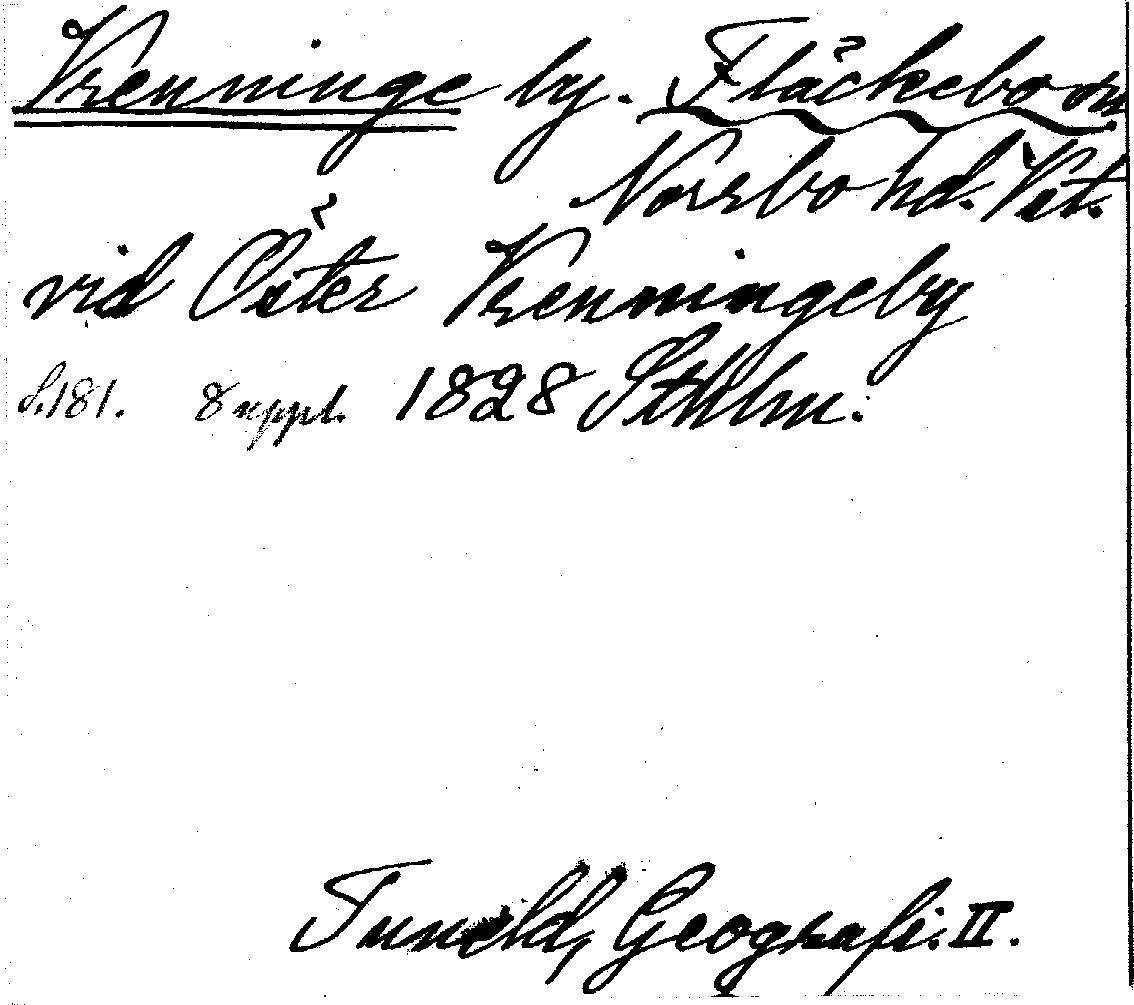 Vrenninge by. Fläckebo sn
Norrbo hd. Vst.
vid Öster Vrenningeby
S. 181. 8 uppl. 1828 Sthlm.
Tuneld, Geografi. II.